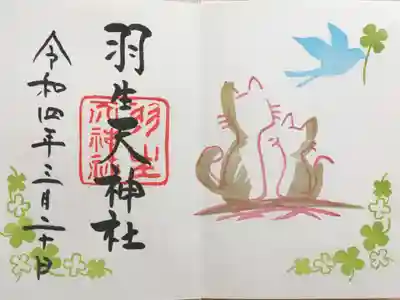 羽生天神社
羽生
天神社
令和四年三月二十日